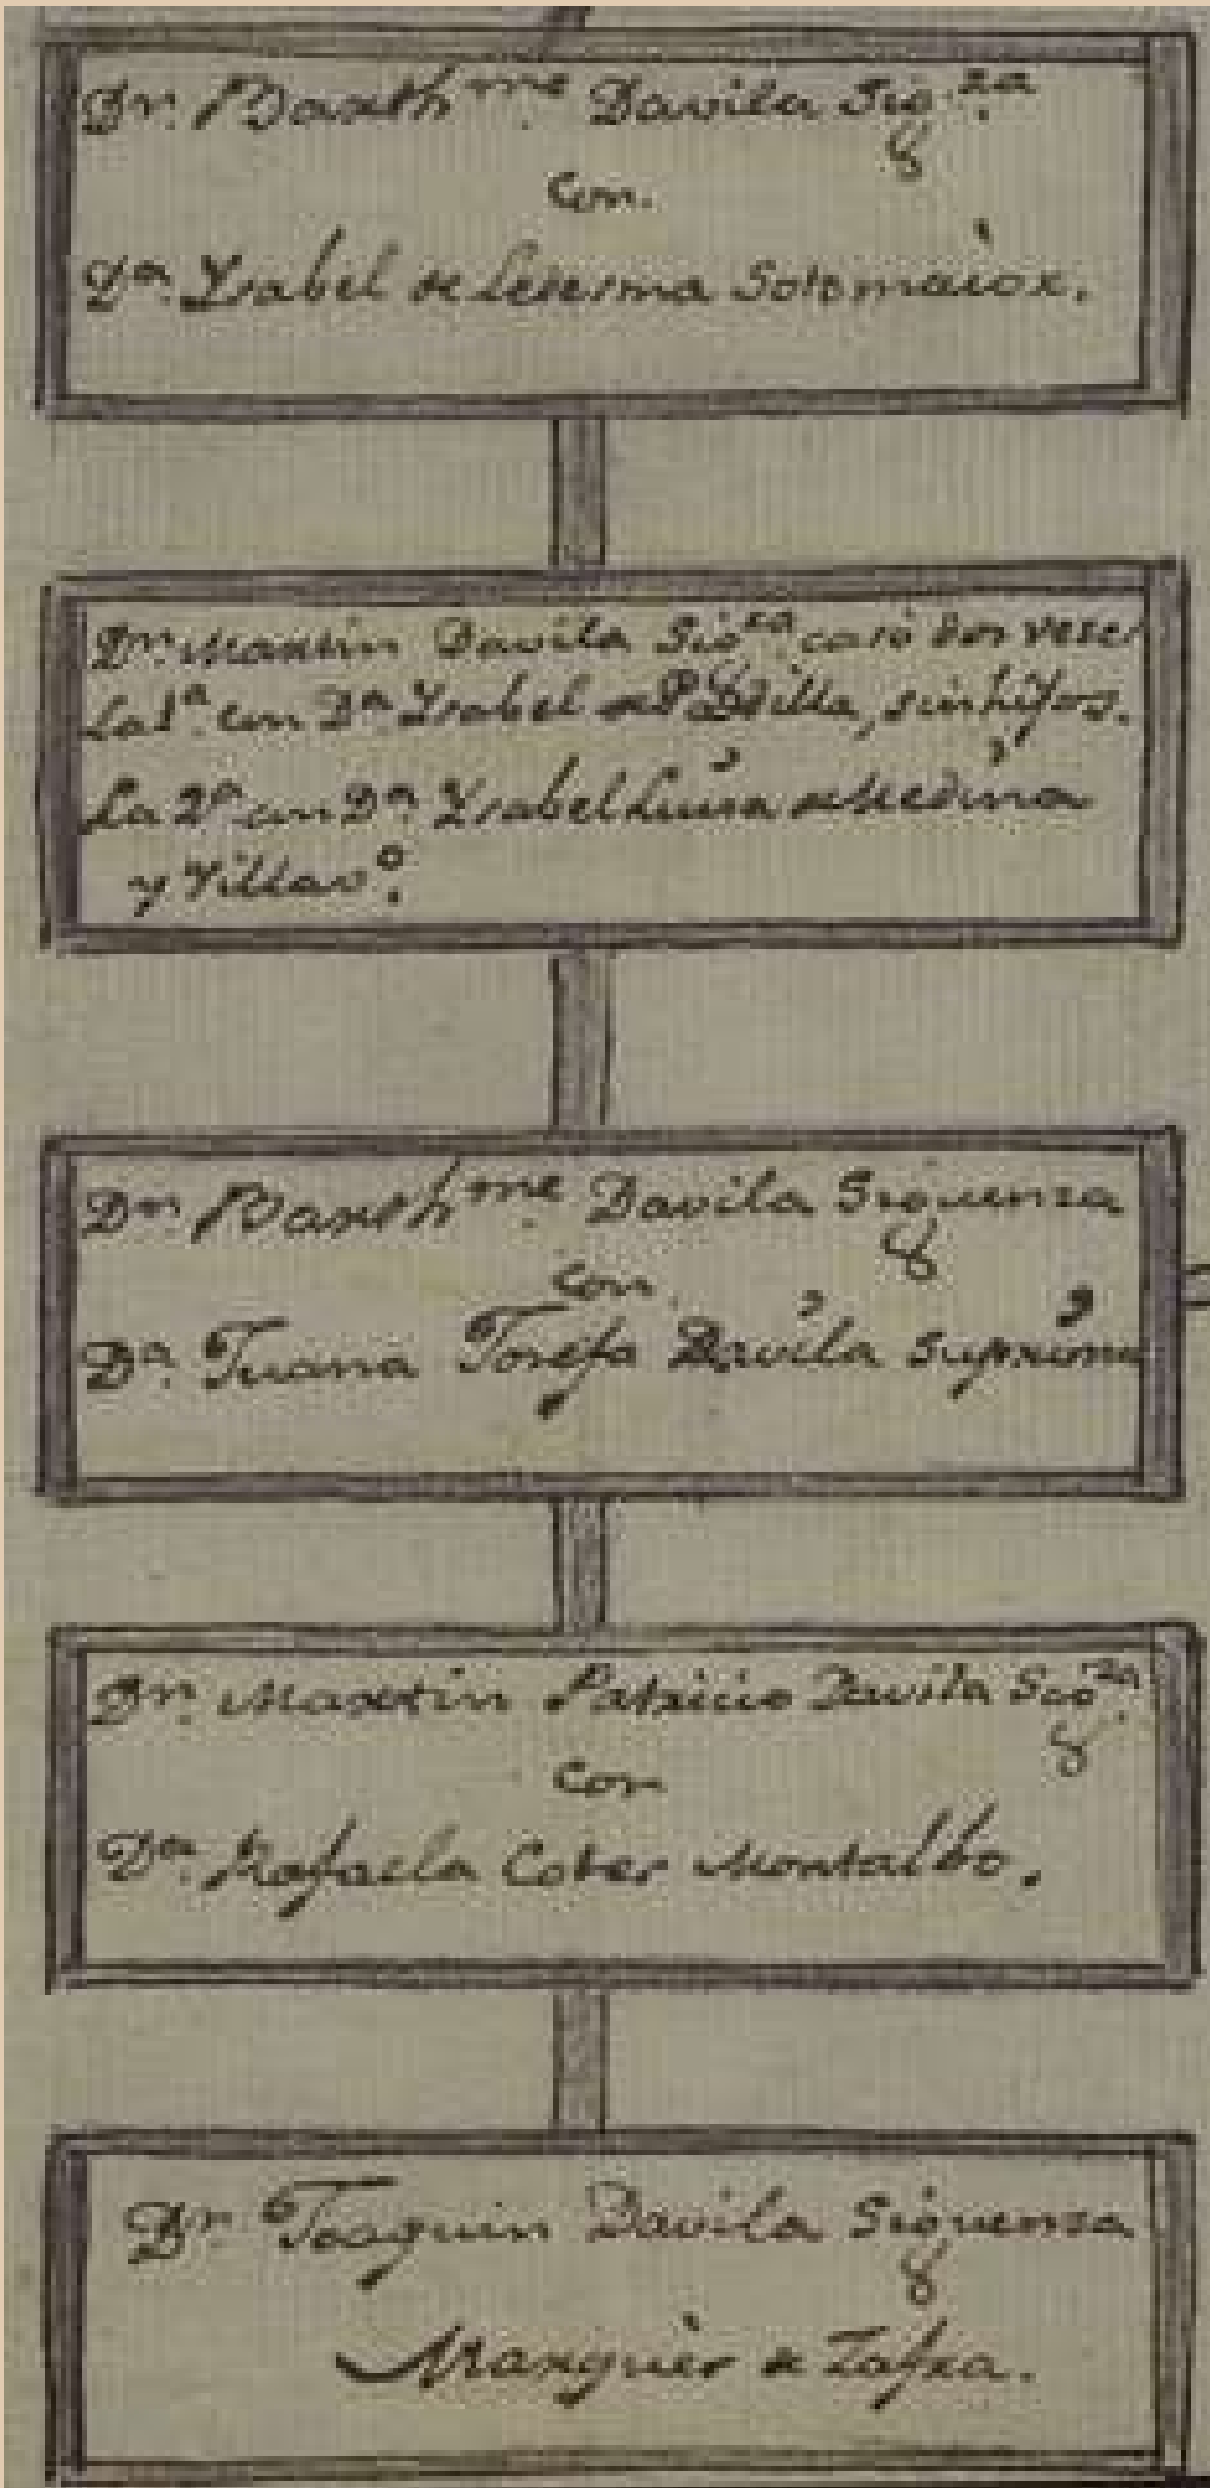 Dn. Barthme. Davila Sigza.
con.
Da. Ysabel de Ledesma Sotomaior.
Dn. Martin Davila Sigza. casò dos veses
La 1a. con Da. Ysabel de Padilla, sin hijos.
La 2a. con Da. Ysabel Luisa de Medina
y Villavo.
Dn. Barthme. Davila Siguenza
con
Da. Juana Josefa Davila su prima
Dn. Martin Patricio Davila Sigza.
con
Da. Rafaela Montalbo.
Dn. Joaquin Davila Siguenza
Marquès de Tafra.